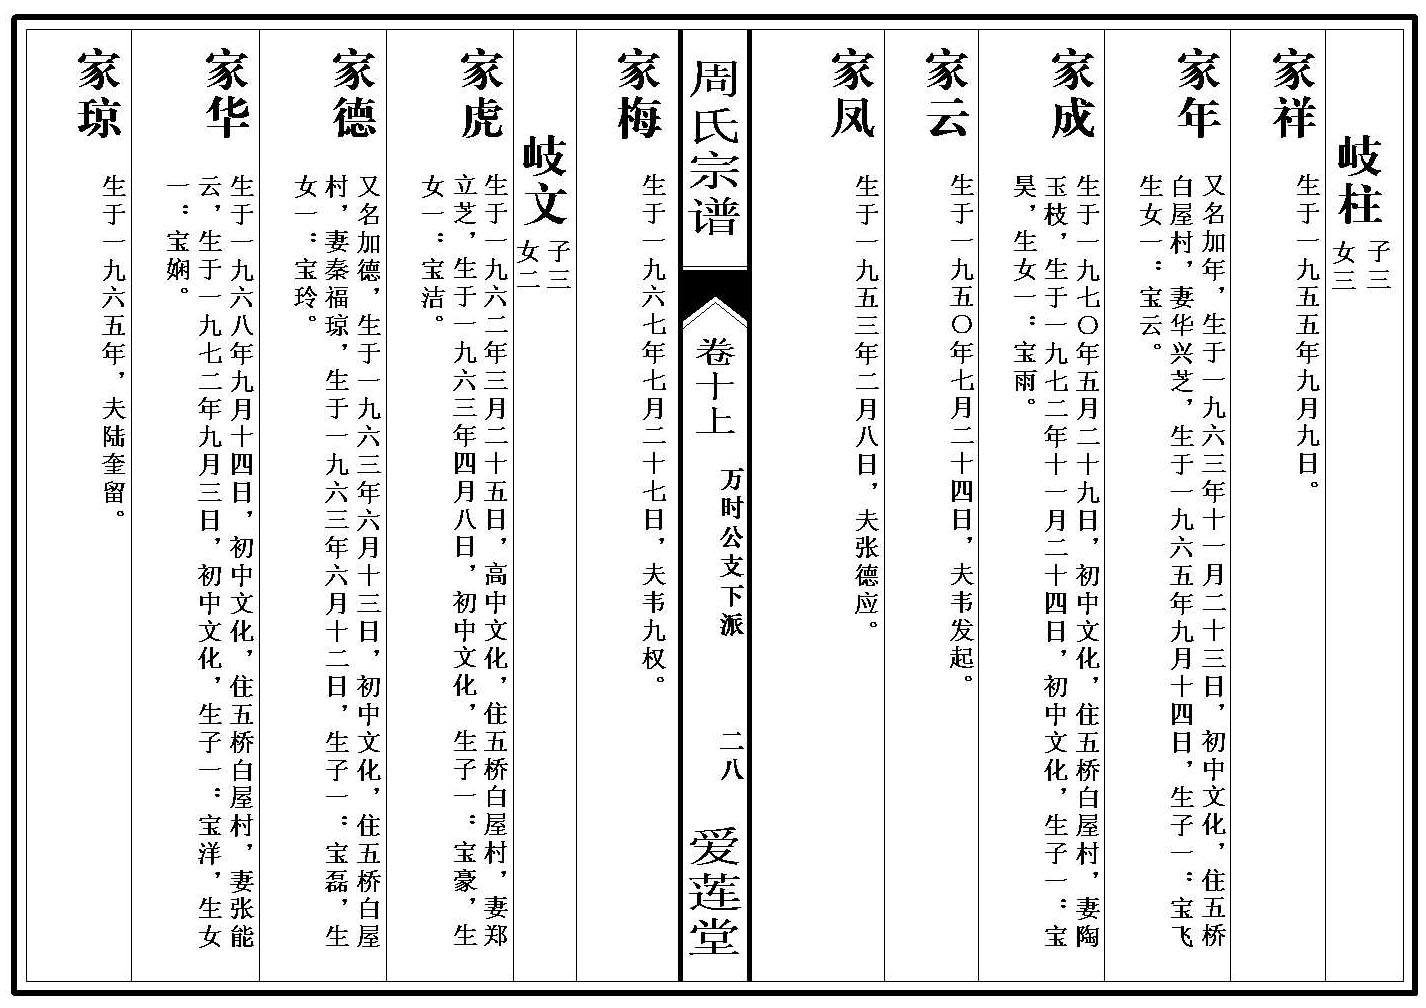 岐柱
子三
女三
家祥
生于一九五五年九月九日。
家年
又名加年，生于一九六三年十一月二十三日，初中文化，住五桥
白屋村，妻华兴芝，生于一九六五年九月十四日，生子一：宝飞
生女一：宝云。
家成
生于一九七〇年五月二十九日，初中文化，住五桥白屋村，妻陶
玉枝，生于一九七二年十一月二十四日，初中文化，生子一：宝
昊，生女一：宝雨。
家云
生于一九五〇年七月二十四日，夫韦发起。
家凤
生于一九五三年二月八日，夫张德应。
周氏宗谱
卷十上
万时公支下派
二八
爱莲堂
家梅
生于一九六七年七月二十七日，夫韦九权。
岐文
子三
女二
家虎
生于一九六二年三月二十五日，高中文化，住五桥白屋村，妻郑
立芝，生于一九六三年四月八日，初中文化，生子一：宝豪，生
女一：宝洁。
家德
又名加德，生于一九六三年六月十三日，初中文化，住五桥白屋
村，妻秦福琼，生于一九六三年六月十二日，生子一：宝磊，生
女一：宝玲。
家华
生于一九六八年九月十四日，初中文化，住五桥白屋村，妻张能
云，生于一九七二年九月三日，初中文化，生子一：宝洋，生女
一：宝娴。
家琼
生于一九六五年，夫陆奎留。